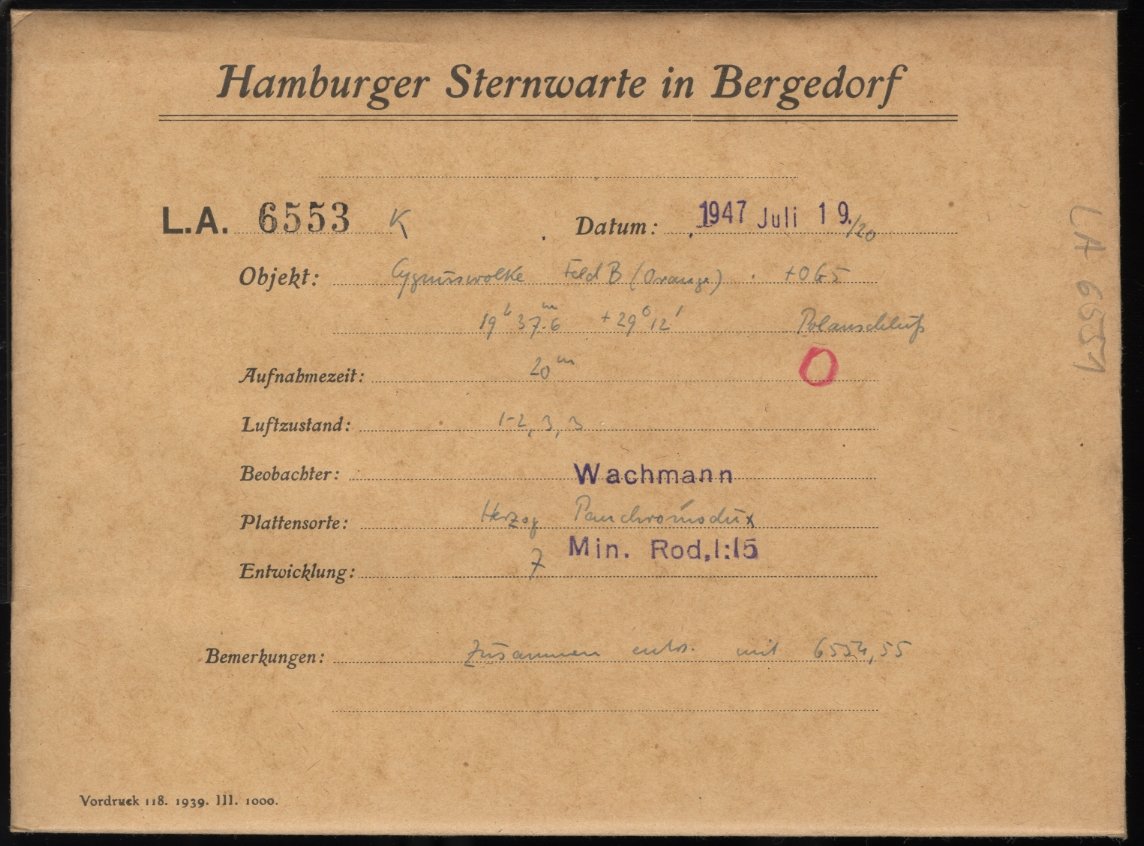 Hamburger Sternwarte in Bergedorf
L.A. 6553 K Datum: 1947 Juli 19./20
Objekt: Cygnuswolke Feld B (Orange) + OG5
19h 37.m6 +29° 12' Polanschluß
Aufnahmezeit: 20m
Luftzustand: 1-2, 3, 3
Beobachter: Wachmann
Plattensorte: Herzog Panchromodux
Entwicklung: 7 Min. Rod, 1:15
Bemerkungen: Zusammen entw. mit 6554, 55
Vordruck 118. 1939. III. 1000.
LA